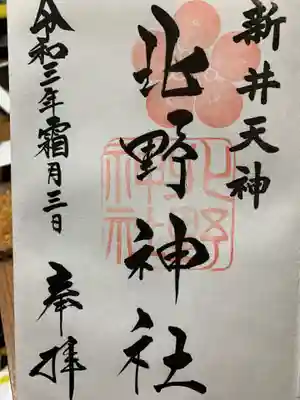 新井天神
北野神社
北野
神社
令和三年霜月三日
奉拝